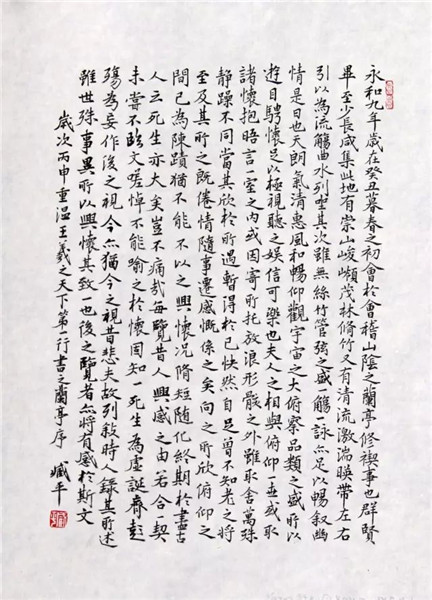 永和九年歲在癸丑暮春之初會於會稽山陰之蘭亭修禊事也群賢
畢至少長咸集此地有崇山峻嶺茂林脩竹又有清流激湍暎帶左右
引以為流觴曲水列坐其次雖無絲竹管弦之盛觴一詠亦足以暢叙幽
情是日也天朗氣清惠風和暢仰觀宇宙之大俯察品類之盛所以
遊目騁懷足以極視聽之娛信可樂也夫人之相與俯仰一世或取
諸懷抱晤言一室之內或因寄所托放浪形骸之外雖取舍萬殊
靜躁不同當其欣於所遇暫得於己快然自足曾不知老之將
至及其所之既倦情隨事遷感慨係之矣向之所欣俯仰之
間已為陳蹟猶不能不以之興懷況脩短隨化終期於盡古
人云死生亦大矣豈不痛哉每覽昔人興感之由若合一契
未嘗不臨文嗟悼不能喻之於懷固知一死生為虛誕齊彭
殤為妄作後之視今亦猶今之視昔悲夫故列敘時人錄其所述
雖世殊事異所以興懷其致一也後之覽者亦將有感於斯文
歲次丙申重溫王羲之天下第一行書之蘭亭序 臧平